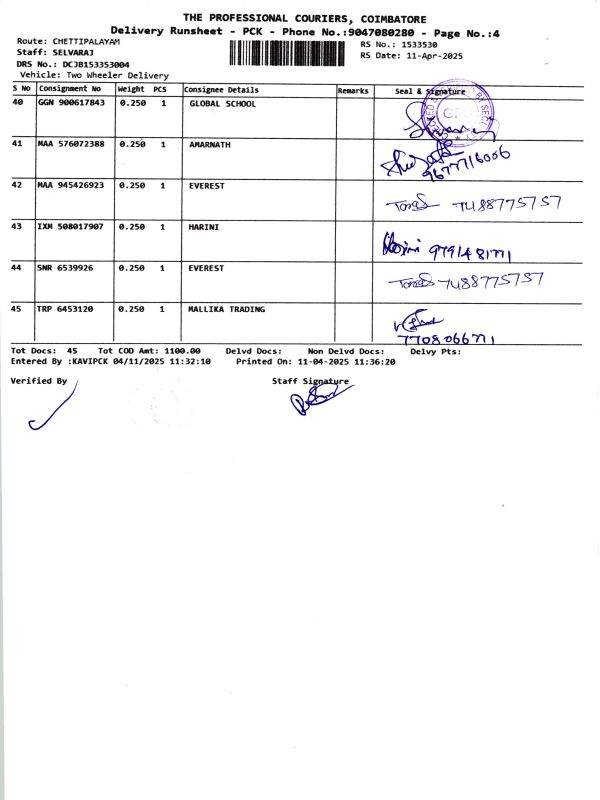 THE PROFESSIONAL COURIERS, COIMBATORE
Delivery Runsheet - PCK - Phone No.:9047080280 - Page No.:4
Route: CHETTIPALAYAM
RS No.: 1533530
Staff: SELVARAJ
RS Date: 11-Apr-2025
DRS No.: DCJB153353004
Vehicle: Two Wheeler Delivery
S No Consignment No Weight PCS Consignee Details Remarks Seal & Signature
40 GGN 900617843 0.250 1 GLOBAL SCHOOL
41 MAA 576072388 0.250 1 AMARNATH
9677716006
42 MAA 945426923 0.250 1 EVEREST
7488775757
43 IXM 508017907 0.250 1 HARINI
Harini 9791481771
44 SNR 6539926 0.250 1 EVEREST
7488775757
45 TRP 6453120 0.250 1 MALLIKA TRADING
7708066771
Tot Docs: 45 Tot COD Amt: 1100.00 Delvd Docs: Non Delvd Docs: Delvy Pts:
Entered By :KAVIPCK 04/11/2025 11:32:10 Printed On: 11-04-2025 11:36:20
Verified By Staff Signature